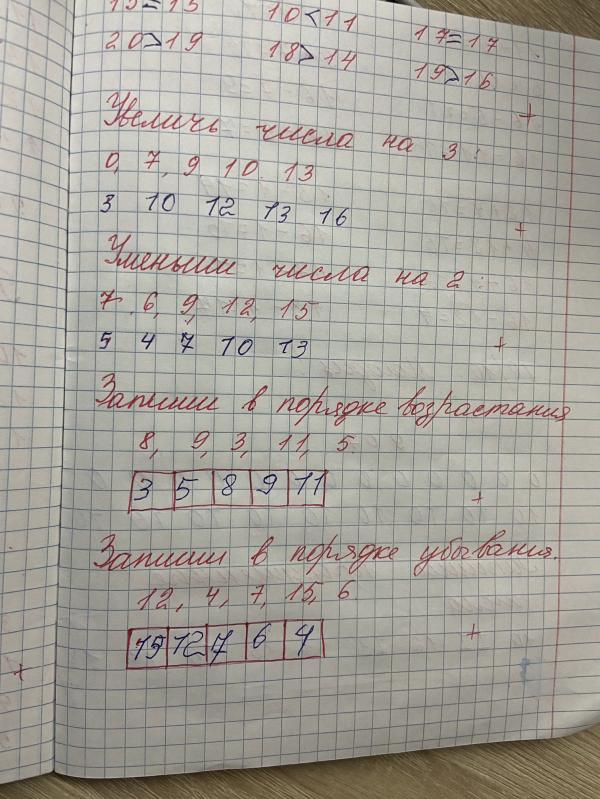 15=15 10<11 17=17
20>19 18>14 19>16
+
Увеличь числа на 3:
0, 7, 9, 10, 13
3 10 12 13 16
+
Уменьши числа на 2:
7, 6, 9, 12, 15
5 4 7 10 13
+
Запиши в порядке возрастания
8, 9, 3, 11, 5
3 5 8 9 11
+
Запиши в порядке убывания.
12, 4, 7, 15, 6
15 12 7 6 4
+
+